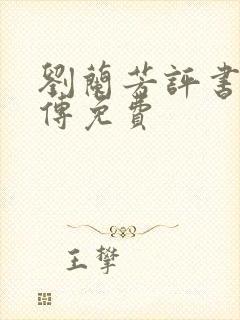 劉蘭芳評書
傳免費
王攀